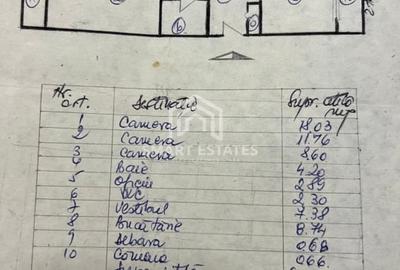 6
Nr. crt. Destinatie Supr. utila mp
1 Camera 18.03
2 Camera 11.76
3 Camera 8.60
4 Baie 4.20
5 Oficiu 2.89
6 WC 2.30
7 Vestibul 7.38
8 Bucatarie 8.74
9 Debara 0.68
10 Camara 0.66
ESTATES